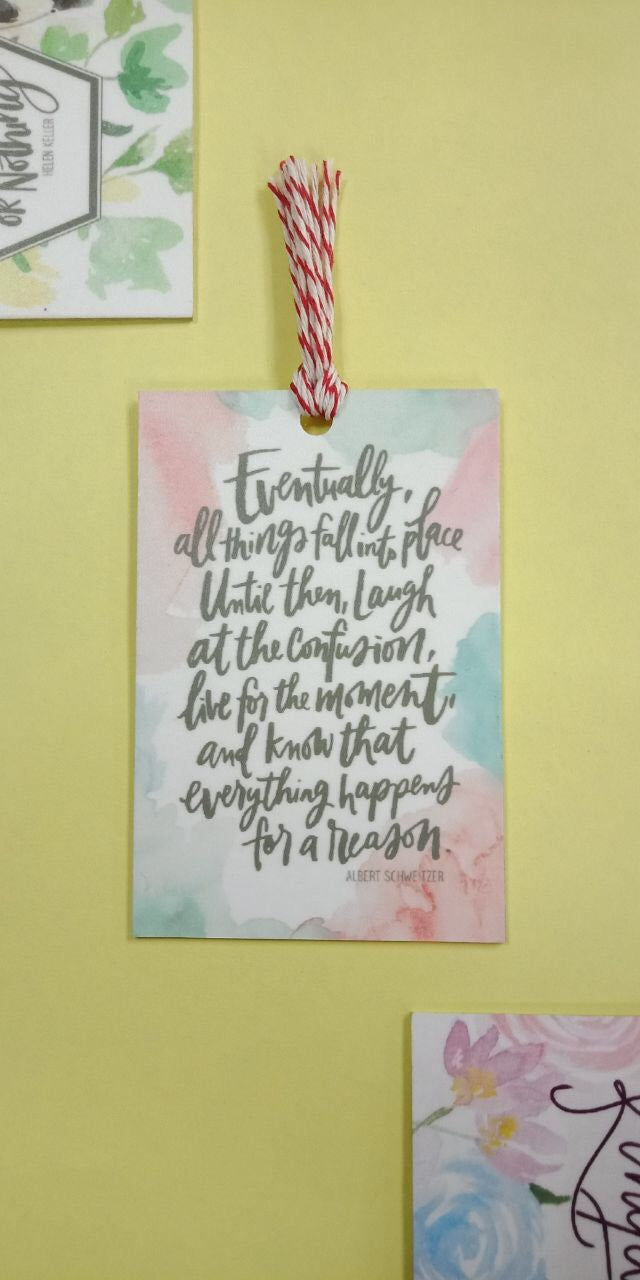 OR Nothing
HELEN KELLER
Eventually,
all things fall into place
Until then, Laugh
at the confusion,
live for the moment,
and know that
everything happens
for a reason.
ALBERT SCHWEITZER